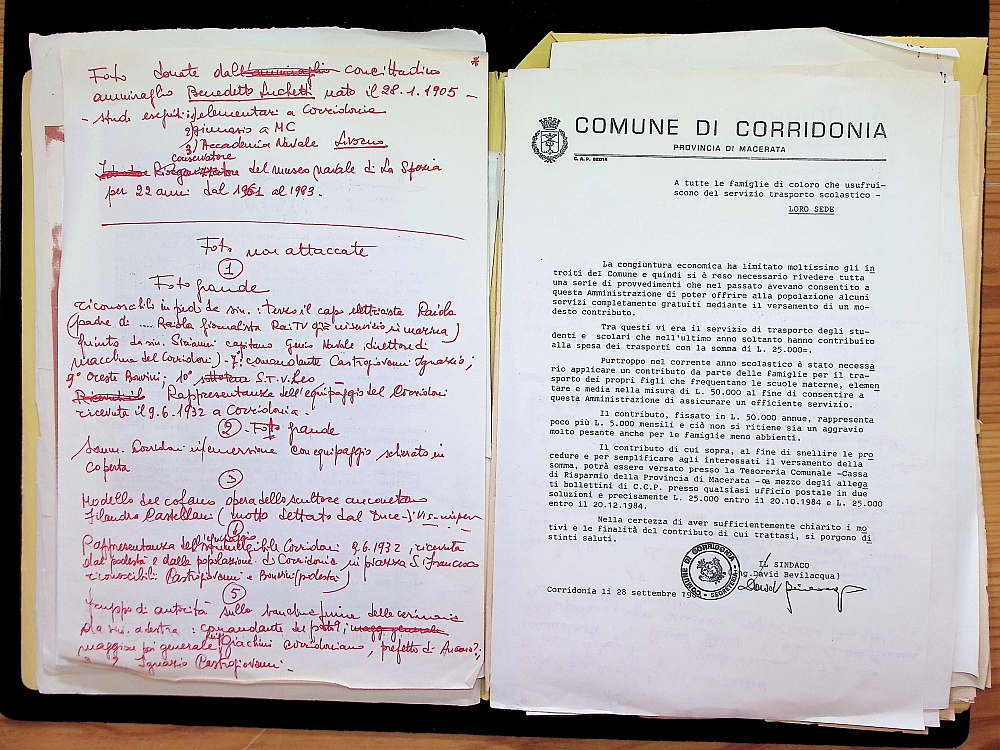 Foto donate dall'ammiraglio concittadino
ammiraglio Benedetto Luchetti nato il 28.1.1905 -
- studi eseguiti: 1) elementari a Corridonia
2) ginnasio a MC
3) Accademia Navale Livorno
Conservatore
del museo navale di La Spezia
per 22 anni dal 1961 al 1983.
Foto non attaccate
1
Foto grande
riconoscibili in piedi da sin.: Terzo il capo elettricista Raiola
(padre di .... Raiola giornalista Rai TV già in servizio in marina)
quinto da sin. Sirianni capitano Genio Navale, direttore di
macchina del Corridoni) - 7° comandante Castrogiovanni Ignazio;
9° Oreste Bonvini; 10° S.T.V. Leo
Rappresentanza dell'equipaggio del Corridoni
ricevuta il 9.6.1932 a Corridonia -
2 - Foto grande
Somm. Corridoni in emersione con equipaggio schierato in
coperta
3
Modello del cofano opera dello scultore anconetano
Filandro Castellani (motto dettato dal Duce
4
equipaggio
Rappresentanza dell' Corridoni 9.6.1932, ricevuta
dal podestà e dalla popolazione di Corridonia in piazza S. Francesco
riconoscibili Castrogiovanni e Bonvini (podestà)
5
Gruppo di autorità sulla banchina fine della cerimonia
da sin. a destra: comandante del porto?; maggi generale
maggiore poi generale Luigi Giachini corridoniano, prefetto di Ancona?;
? ? Ignazio Castrogiovanni -
COMUNE DI CORRIDONIA
PROVINCIA DI MACERATA
C.A.P. 62014
A tutte le famiglie di coloro che usufrui-
scono del servizio trasporto scolastico -
LORO SEDE
La congiuntura economica ha limitato moltissimo gli in
troiti del Comune e quindi si è reso necessario rivedere tutta
una serie di provvedimenti che nel passato avevano consentito a
questa Amministrazione di poter offrire alla popolazione alcuni
servizi completamente gratuiti mediante il versamento di un mo-
desto contributo.
Tra questi vi era il servizio di trasporto degli stu-
denti e scolari che nell'ultimo anno soltanto hanno contribuito
alla spesa dei trasporti con la somma di L. 25.000=.
Purtroppo nel corrente anno scolastico è stato necessa
rio applicare un contributo da parte delle famiglie per il tra-
sporto dei propri figli che frequentano le scuole materne, elemen
tare e media nella misura di L. 50.000 al fine di consentire a
questa Amministrazione di assicurare un efficiente servizio.
Il contributo, fissato in L. 50.000 annue, rappresenta
poco più L. 5.000 mensili e ciò non si ritiene sia un aggravio
molto pesante anche per le famiglie meno abbienti.
Il contributo di cui sopra, al fine di snellire le pro
cedure e per semplificare agli interessati il versamento della
somma, potrà essere versato presso la Tesoreria Comunale -Cassa
di Risparmio della Provincia di Macerata -oa mezzo degli allega
ti bollettini di C.C.P. presso qualsiasi ufficio postale in due
soluzioni e precisamente L. 25.000 entro il 20.10.1984 e L. 25.000
entro il 20.12.1984.
Nella certezza di aver sufficientemente chiarito i mo
tivi e le finalità del contributo di cui trattasi, si porgono di
stinti saluti.
COMUNE DI CORRIDONIA
SEGRETERIA
IL SINDACO
ng.David Bevilacqua)
Corridonia lì 28 settembre 198